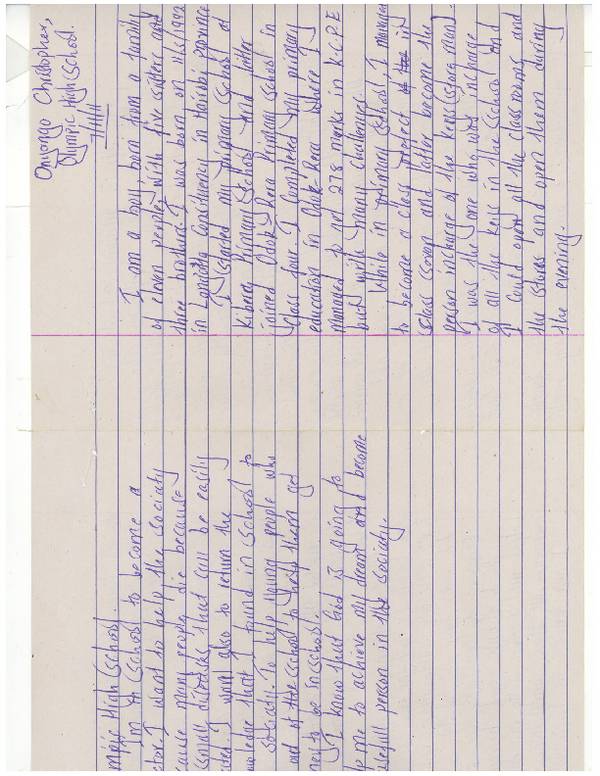 Onyango Christopher,
Olympic High School.
7/11/11
I am a boy born from a family
of eleven people with five sisters and
three brothers. I was born on 11/5/1992
in Langata Constituency in Nairobi province
I started my primary school at
Kibera Primary School and latter
joined Odok-Rera Primary School in
Class four. I completed my primary
education in Odok-Rera where I
managed to get 278 marks in KCPE
but with many challenges.
While in primary school, I manage
to become a class prefect in
class seven and latter become the
person incharge of the keys
I was the one who was incharge
of all the keys in the school and
I could open all the classrooms and
the stores and open them during
the evening.
mpic High School.
I'm in school to become a
ctor. I want to help the society
cause many people die because
small diseases that can be easily
I want also to return the
wledge that I found in school to
society. To help young people who
out of school to help them get
ney to be in school.
I know that God is going to
me to achieve my dream and become
usefull person in the society.